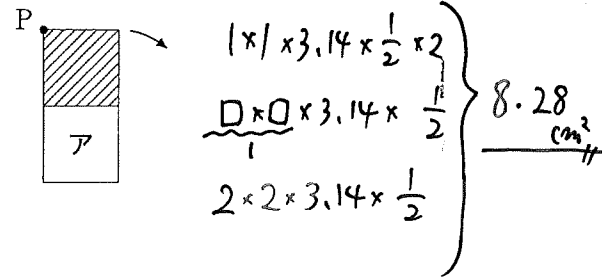 P
ア
1×1×3.14×1/2×2
□×□×3.14×1/2
1
2×2×3.14×1/2
8.28
cm²